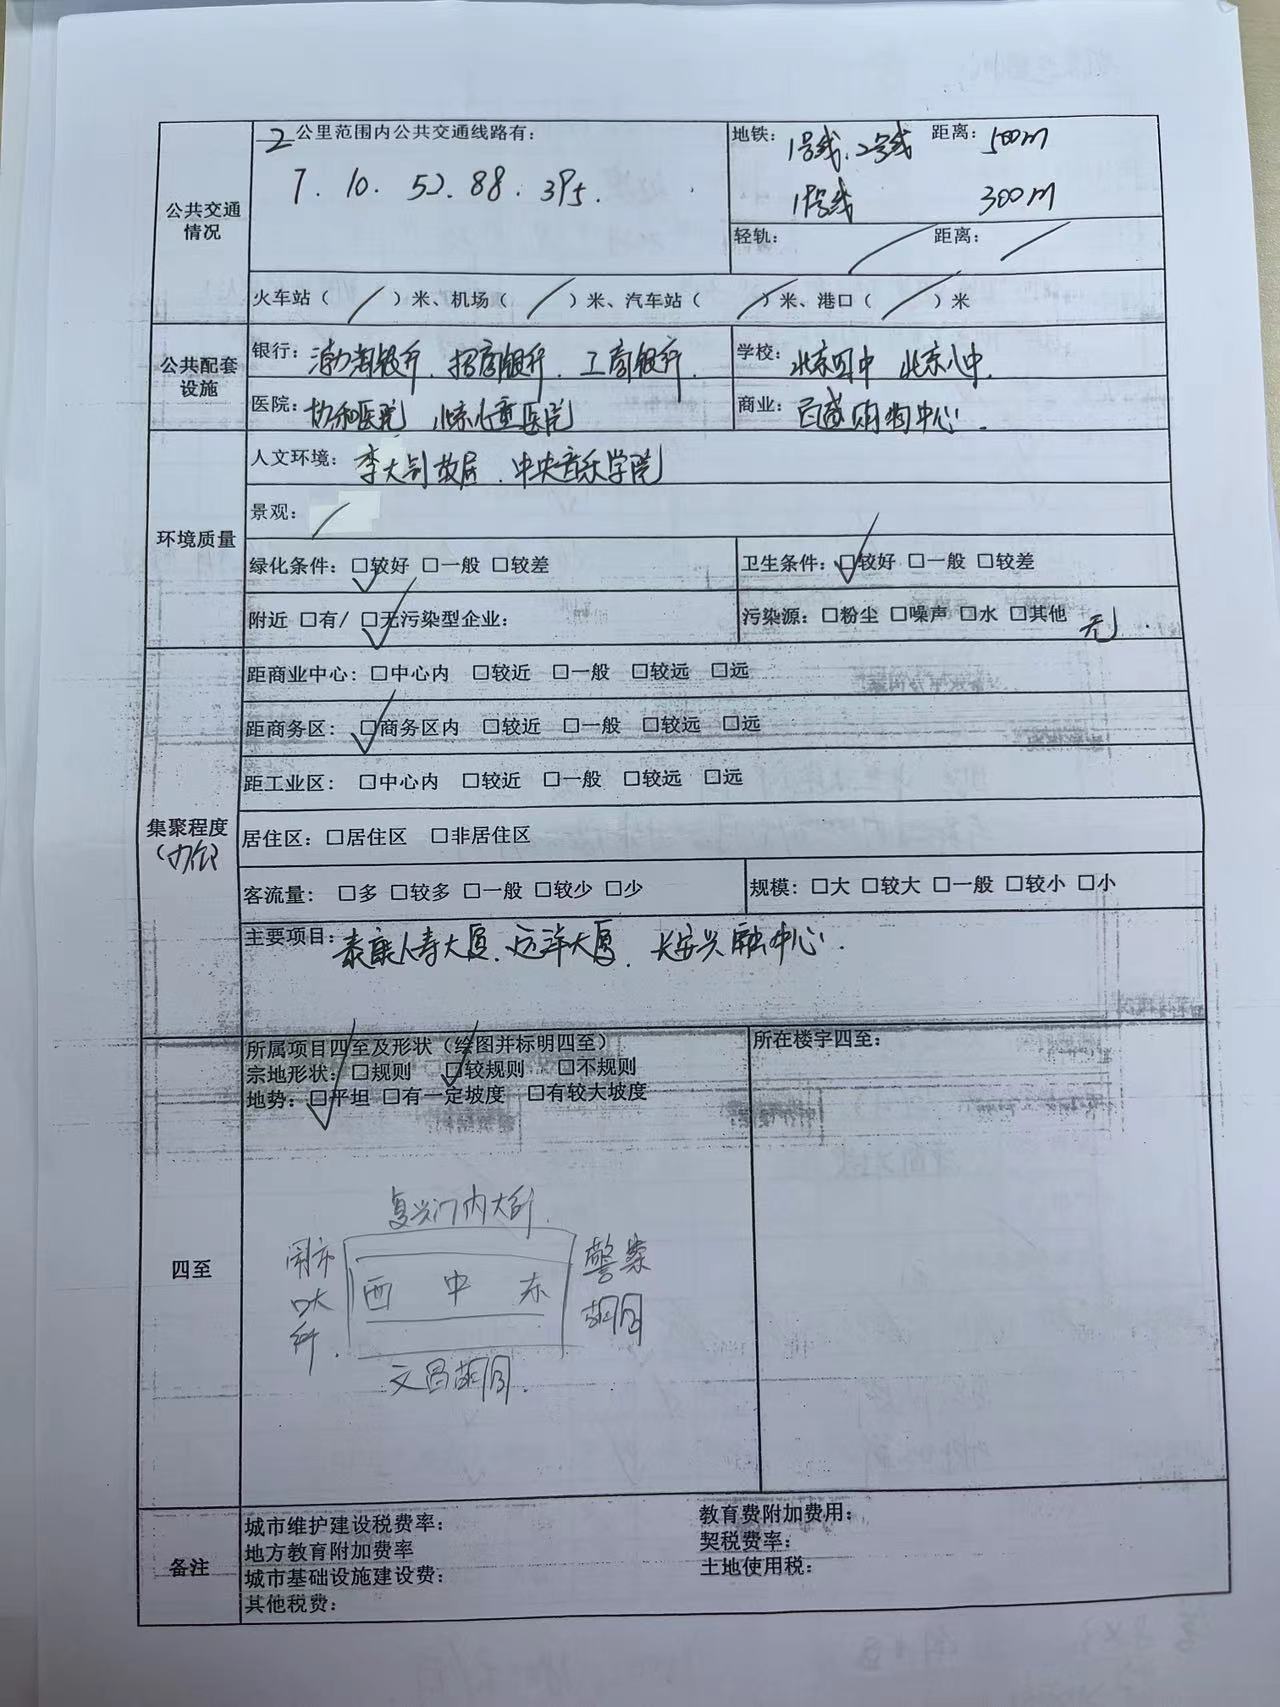 2公里范围内公共交通线路有:
7. 10. 52. 88. 395.
地铁: 1号线、2号线 距离: 500m
19号线 300m
轻轨: / 距离: /
公共交通
情况
火车站( / )米、机场( / )米、汽车站( / )米、港口( / )米
公共配套
设施
银行: 渤海银行. 招商银行. 工商银行.
学校: 北京四中 北京八中.
医院: 协和医院 北京儿童医院
商业: 百盛购物中心.
环境质量
人文环境: 李大钊故居. 中央音乐学院
景观: /
绿化条件: ☑较好 □一般 □较差
卫生条件: ☑较好 □一般 □较差
附近 □有/ ☑无污染型企业:
污染源: □粉尘 □噪声 □水 □其他 无.
集聚程度
(办公)
距商业中心: □中心内 □较近 □一般 □较远 □远
距商务区: ☑商务区内 □较近 □一般 □较远 □远
距工业区: □中心内 □较近 □一般 □较远 □远
居住区: □居住区 □非居住区
客流量: □多 □较多 □一般 □较少 □少
规模: □大 □较大 □一般 □较小 □小
主要项目: 泰康人寿大厦. 远洋大厦. 长安兴融中心.
四至
所属项目四至及形状(绘图并标明四至)
宗地形状: □规则 ☑较规则 □不规则
地势: ☑平坦 □有一定坡度 □有较大坡度
所在楼宇四至:
复兴门内大街.
闹市
口大
街.
西 中 东
警察
胡同
文昌胡同.
备注
城市维护建设税费率:
教育费附加费用:
地方教育附加费率
契税费率:
城市基础设施建设费:
土地使用税:
其他税费: